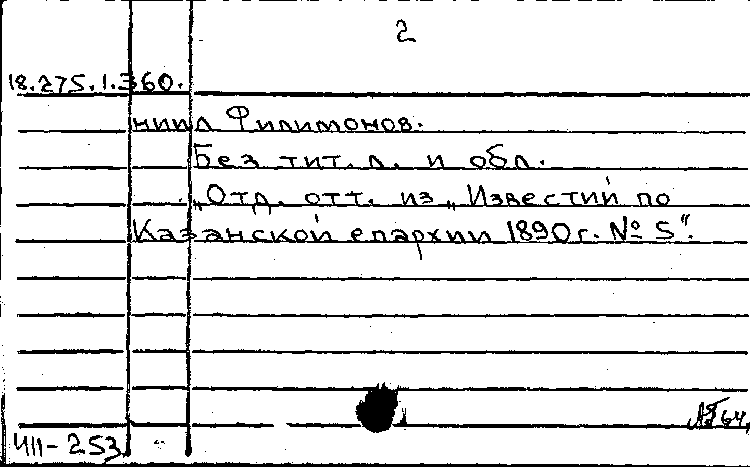 2
18.275.1.360.
нипл Филимонов.
Без тит. л. и обл.
„Отд. отт. из „Известий по
Казанской епархии 1890г. № 5".
64,
ЧІІ-253